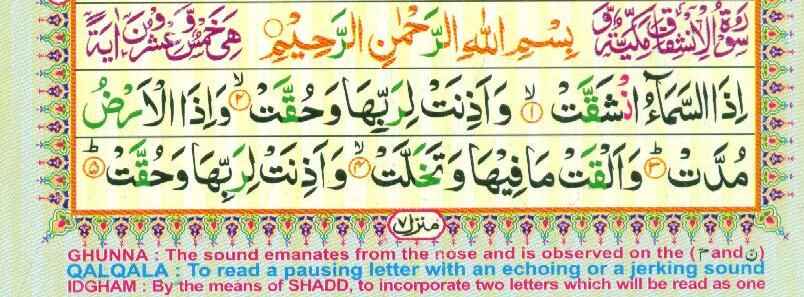 سُوْرَةُ الْاِنْشِقَاقِ مَكِّيَّةٌ وَّ بِسْمِ اللهِ الرَّحْمٰنِ الرَّحِيْمِ ○ هِيَ خَمْسٌ وَّعِشْرُوْنَ اٰيَةً
اِذَا السَّمَآءُ انْشَقَّتْ ۙ﴿۱﴾ وَاَذِنَتْ لِرَبِّهَا وَحُقَّتْ ۙ﴿۲﴾ وَاِذَا الْاَرْضُ
مُدَّتْ ؕ﴿۳﴾ وَاَلْقَتْ مَا فِيْهَا وَتَخَلَّتْ ۙ﴿۴﴾ وَاَذِنَتْ لِرَبِّهَا وَحُقَّتْ ؕ﴿۵﴾
منزل ۷
GHUNNA : The sound emanates from the nose and is observed on the (م and ن)
QALQALA : To read a pausing letter with an echoing or a jerking sound
IDGHAM : By the means of SHADD, to incorporate two letters which will be read as one